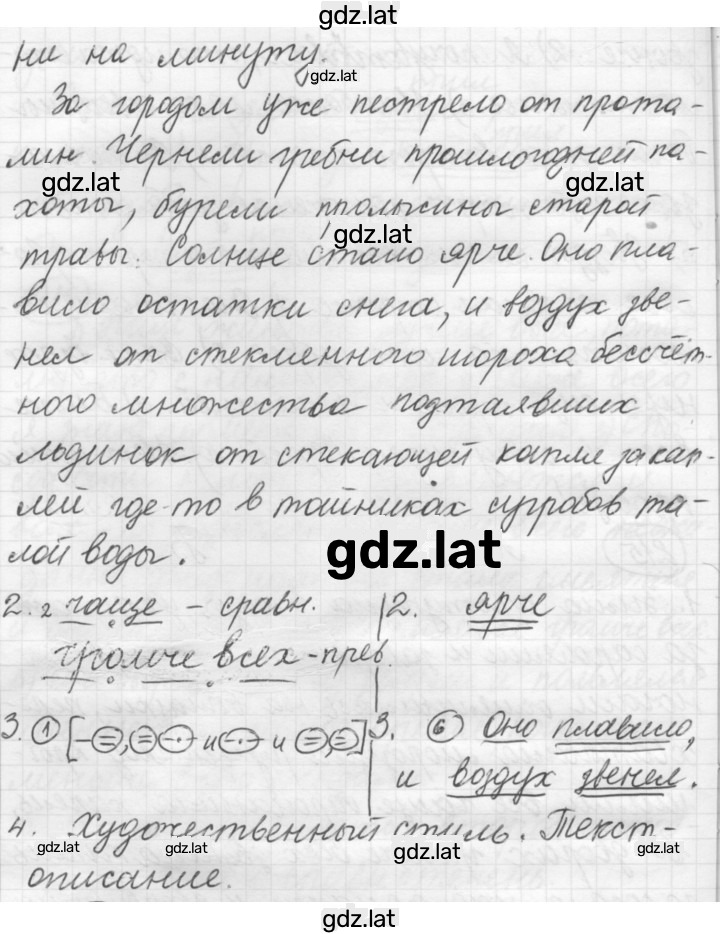 gdz.lat
ни на минуту.
gdz.lat
За городом уже пестрело от прота-
лин. Чернели гребни прошлогодней па-
gdz.lat gdz.lat
хоты, бурели проплешины старой
gdz.lat
травы. Солнце стало ярче. Оно пла-
вило остатки снега, и воздух зве-
нел от стеклянного шороха бессчёт-
ного множества подтаявших
льдинок от стекающей капля за кап-
лей где-то в тайниках сугробов та-
лой воды.
gdz.lat
2. 2 чаще - сравн. 2. ярче
громче всех - прев.
3. ① [- =, = -·- и -·- и =, =] 3. ⑥ Оно плавило,
и воздух звенел.
4. Художественный стиль. Текст-
gdz.lat gdz.lat gdz.lat gdz.lat
описание.
gdz.lat